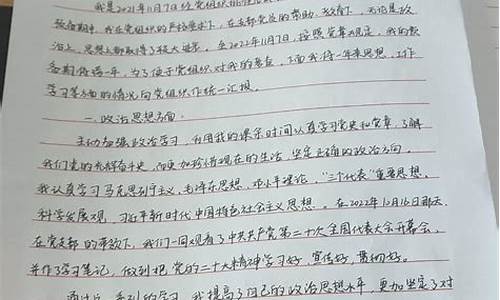 我是2021年11月7日经党组织批准
预备期中，我在党组织的严格要求下，在支部党员的帮助、教育下，无论是政
治上，思想上都取得了较大进步。至2022年11月7日，按照党章规定，我的预
备期将满一年，为了便于党组织对我的考查，下面我将一年来思想、工作
学习等方面的情况向党组织作统一汇报。
一、政治思想方面。
主动加强政治学习，利用我的课余时间认真学习党史和党章，了解
我们党的光辉奋斗史，从而更加珍惜现在的生活，坚定正确的政治方向。
我认真学习马克思列宁主义，毛泽东思想，邓小平理论，“三个代表”重要思想，
科学发展观，习近平新时代中国特色社会主义思想。在2022年10月16日那天，
在党支部的带领下，我们一同观看了中共共产党第二十次全国代表大会开幕会，
并作了学习笔记，做到把党的二十大精神学习好，宣传好，贯彻好。
通过这一系列的学习，我提高了自己的政治思想水平，更加坚定了对